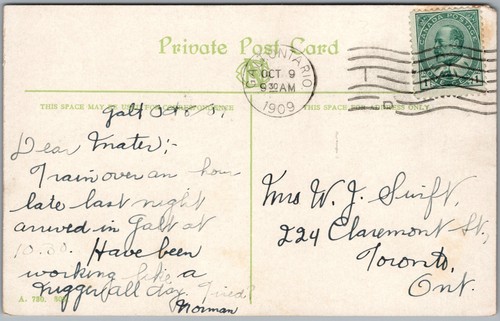 Private Post Card
GALT, ONTARIO
OCT 9
9 30 AM
1909
CANADA POSTAGE
THIS SPACE MAY BE USED FOR CORRESPONDENCE
THIS SPACE FOR ADDRESS ONLY
Galt Oct 8,
Dear Mater;-
Train over an hour
late last night
arrived in Galt at
10.30. Have been
working like a
nigger all day. Tired?
Norman
Mrs W. J. Swift,
224 Claremont St,
Toronto,
Ont.